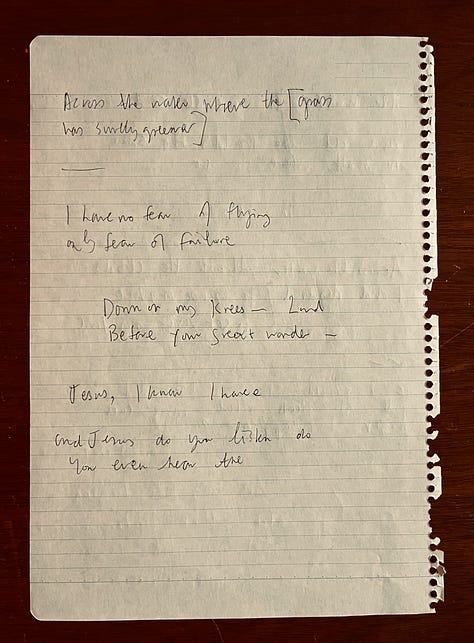 Across the water where the [grass
has surely greener]
I have no fear of flying
only fear of failure
Down on my knees — Lord
Before your great wonder —
Jesus, I know I have
and Jesus do you listen do
you even hear the